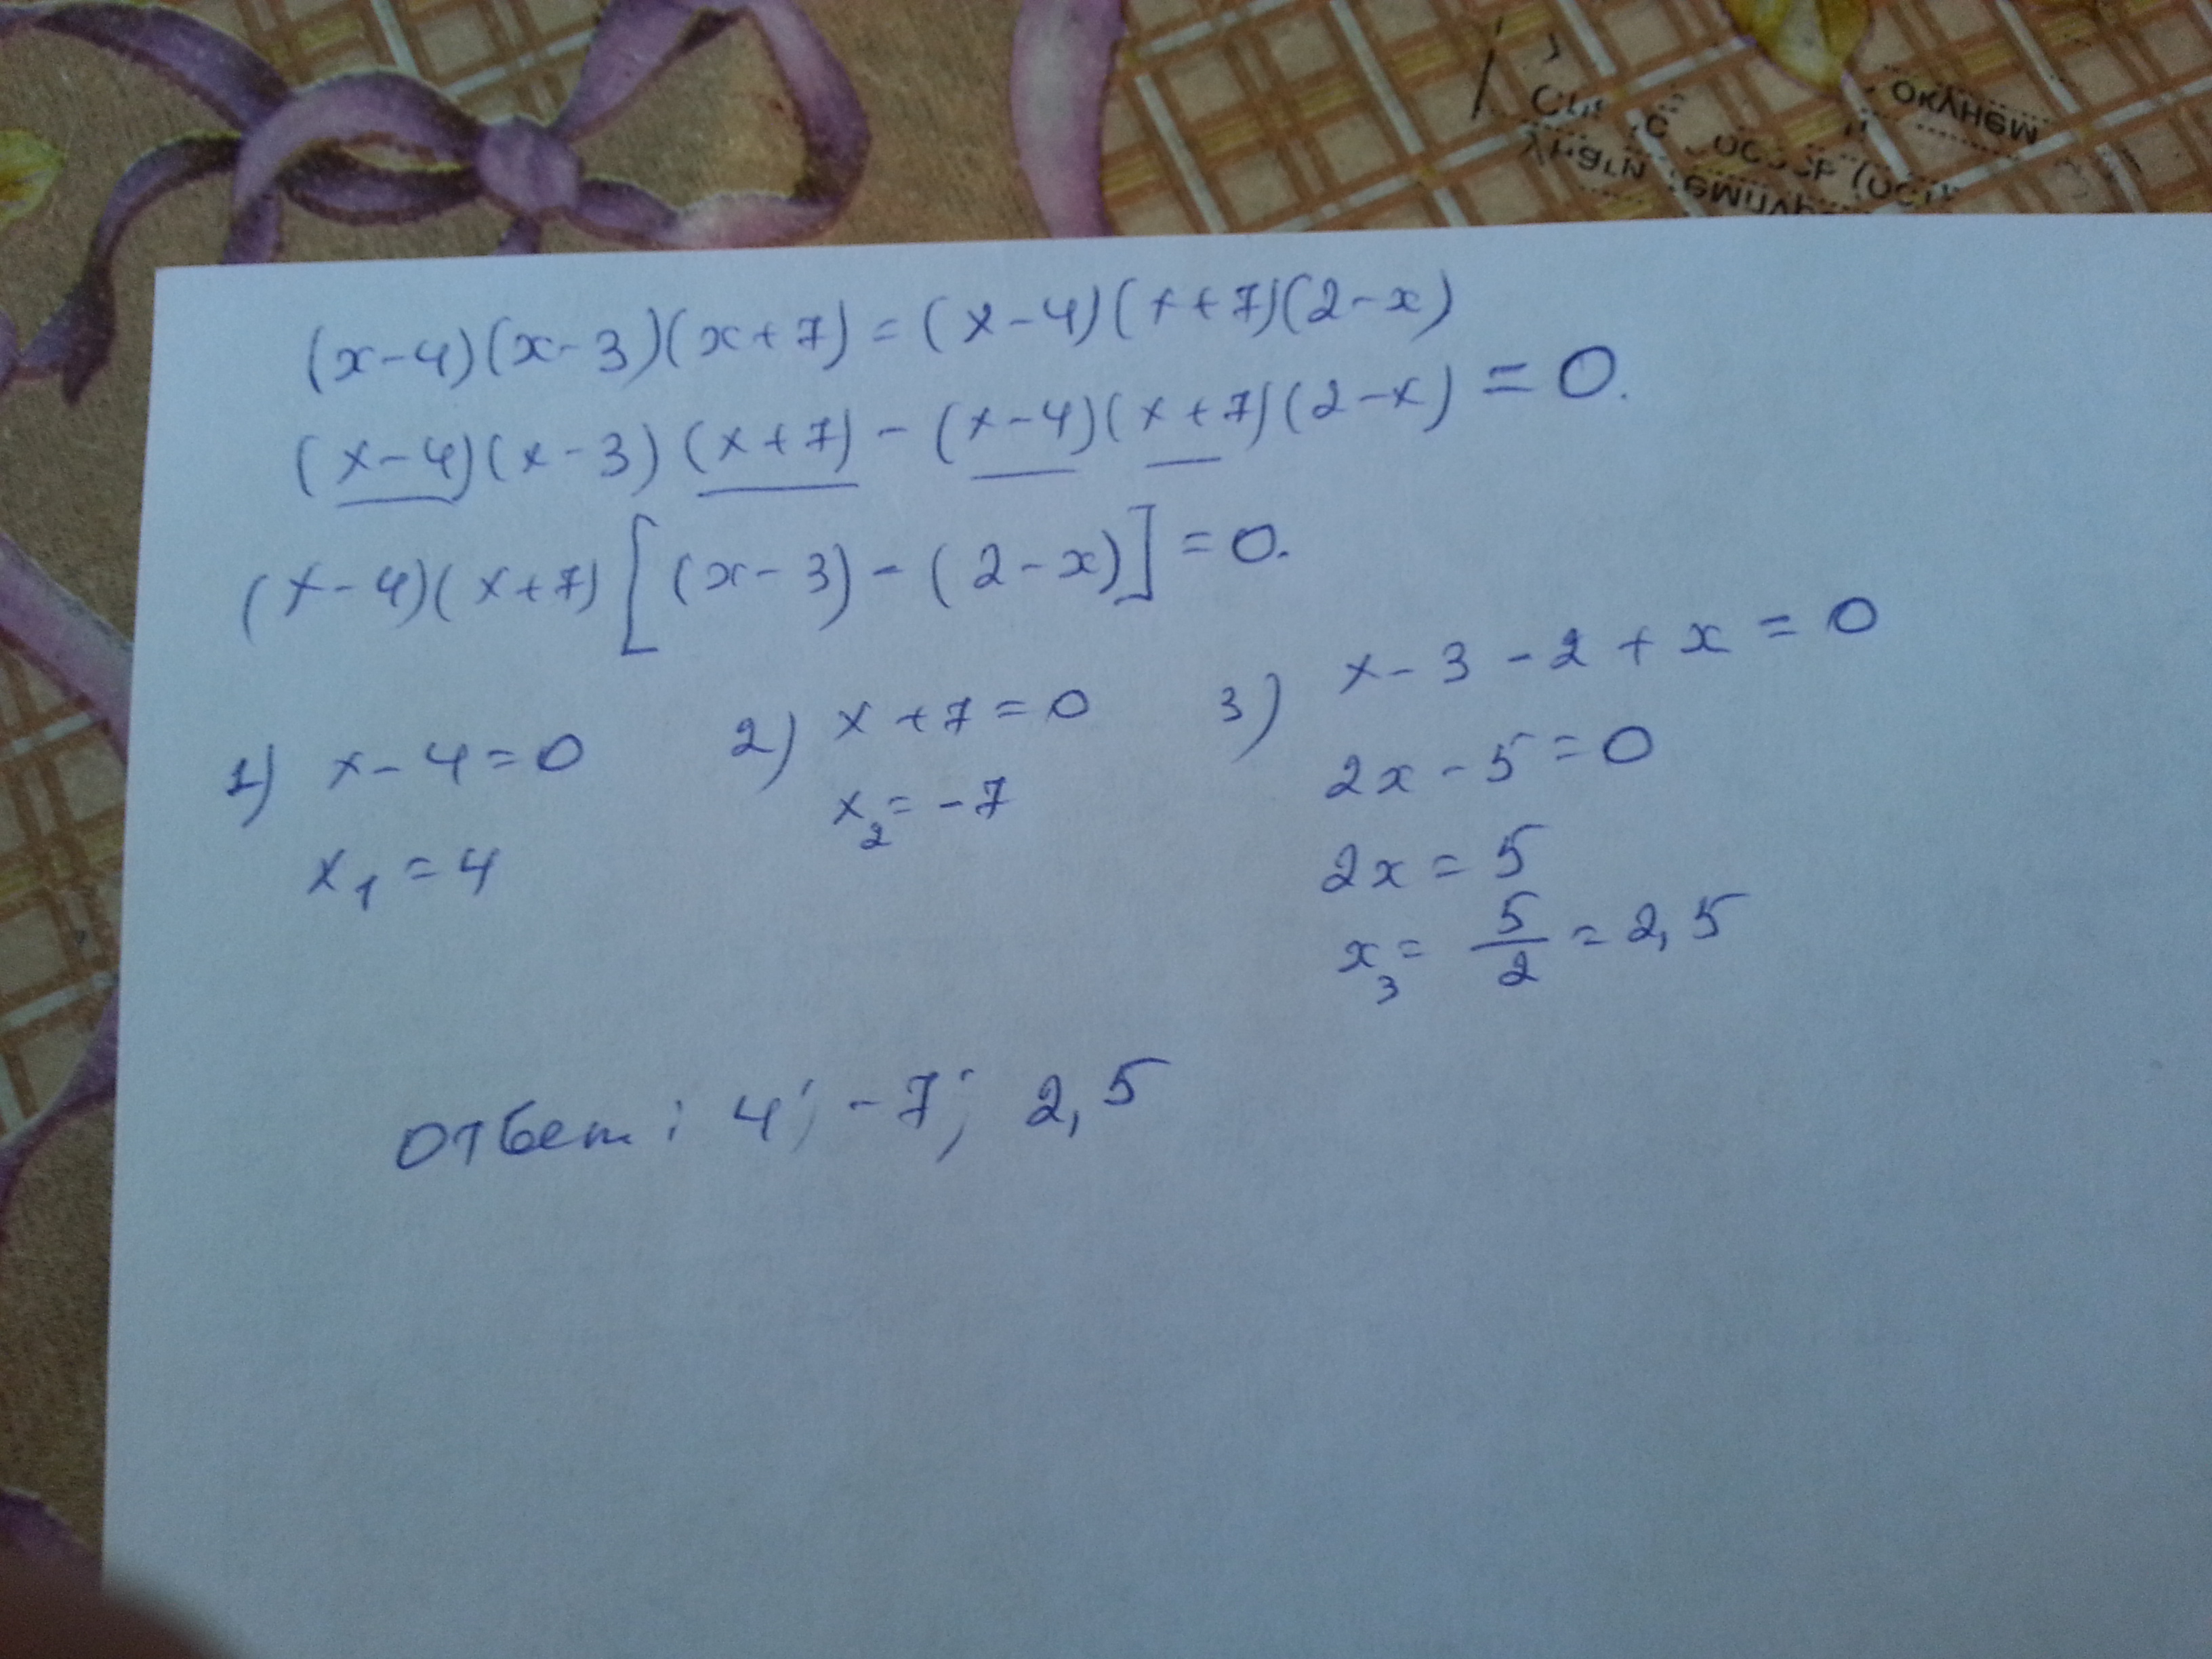 окунем
(x-4)(x-3)(x+7)=(x-4)(x+7)(2-x)
(x-4)(x-3)(x+7)-(x-4)(x+7)(2-x)=0.
(x-4)(x+7)[(x-3)-(2-x)]=0.
1) x-4=0 2) x+7=0 3) x-3-2+x=0
x₁=4 x₂=-7 2x-5=0
2x=5
x₃=5/2=2,5
Ответ: 4; -7; 2,5